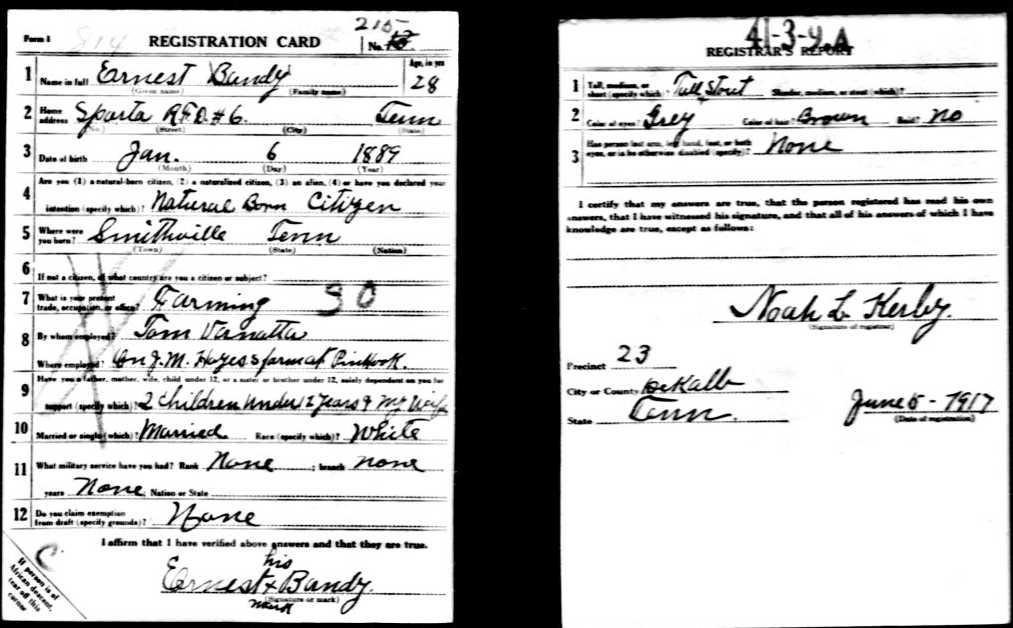 Form 1 814 REGISTRATION CARD No. 215
1 Name in full Ernest Bandy Age, in yrs 28
(Given name) (Family name)
2 Home address Sparta R.F.D. #6. Tenn
(No.) (Street) (City) (State)
3 Date of birth Jan. 6 1889
(Month) (Day) (Year)
4 Are you (1) a natural-born citizen, (2) a naturalized citizen, (3) an alien, (4) or have you declared your
intention (specify which)? Natural Born Citizen
5 Where were you born? Smithville Tenn
(Town) (State) (Nation)
6 If not a citizen, of what country are you a citizen or subject?
7 What is your present trade, occupation, or office? Farming 90
8 By whom employed? Tom Vanatta
Where employed? On J.M. Hayes farm at
9 Have you a father, mother, wife, child under 12, or a sister or brother under 12, solely dependent on you for
support (specify which)? 2 Children under 2 years & My Wife
10 Married or single (which)? Married Race (specify which)? White
11 What military service have you had? Rank None ; branch none
years None; Nation or State
12 Do you claim exemption from draft (specify grounds)? None
I affirm that I have verified above answers and that they are true.
his
Ernest x Bandy.
(Signature or mark)
mark
If person is of African descent, tear off this corner
C.
41-3-4.A
REGISTRAR'S REPORT
1 Tall, medium, or short (specify which)? Tall Stout Slender, medium, or stout (which)?
2 Color of eyes? Grey Color of hair? Brown Bald? No
3 Has person lost arm, leg, hand, foot, or both eyes, or is he otherwise disabled (specify)? None
I certify that my answers are true, that the person registered has read his own
answers, that I have witnessed his signature, and that all of his answers of which I have
knowledge are true, except as follows:
Noah L Kerby.
(Signature of registrar)
Precinct 23
City or County DeKalb
State Tenn. June 5 - 1917
(Date of registration)